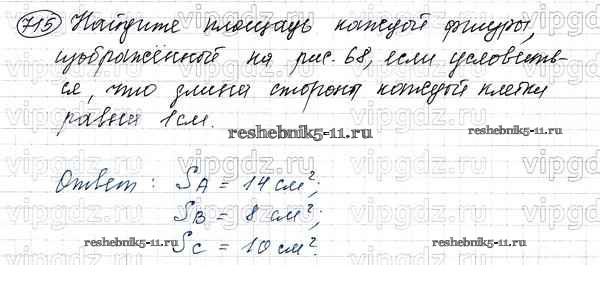 715 Найдите площадь каждой фигуры,
изображённой на рис. 68, если условить-
ся, что длина стороны каждой клетки
равна 1 см.
reshebnik5-11.ru
reshebnik5-11.ru
Ответ: SA = 14 см²;
SB = 8 см²;
reshebnik5-11.ru
reshebnik5-11.ru
SC = 10 см².
vipgdz.ru vipgdz.ru vipgdz.ru vipgdz.ru